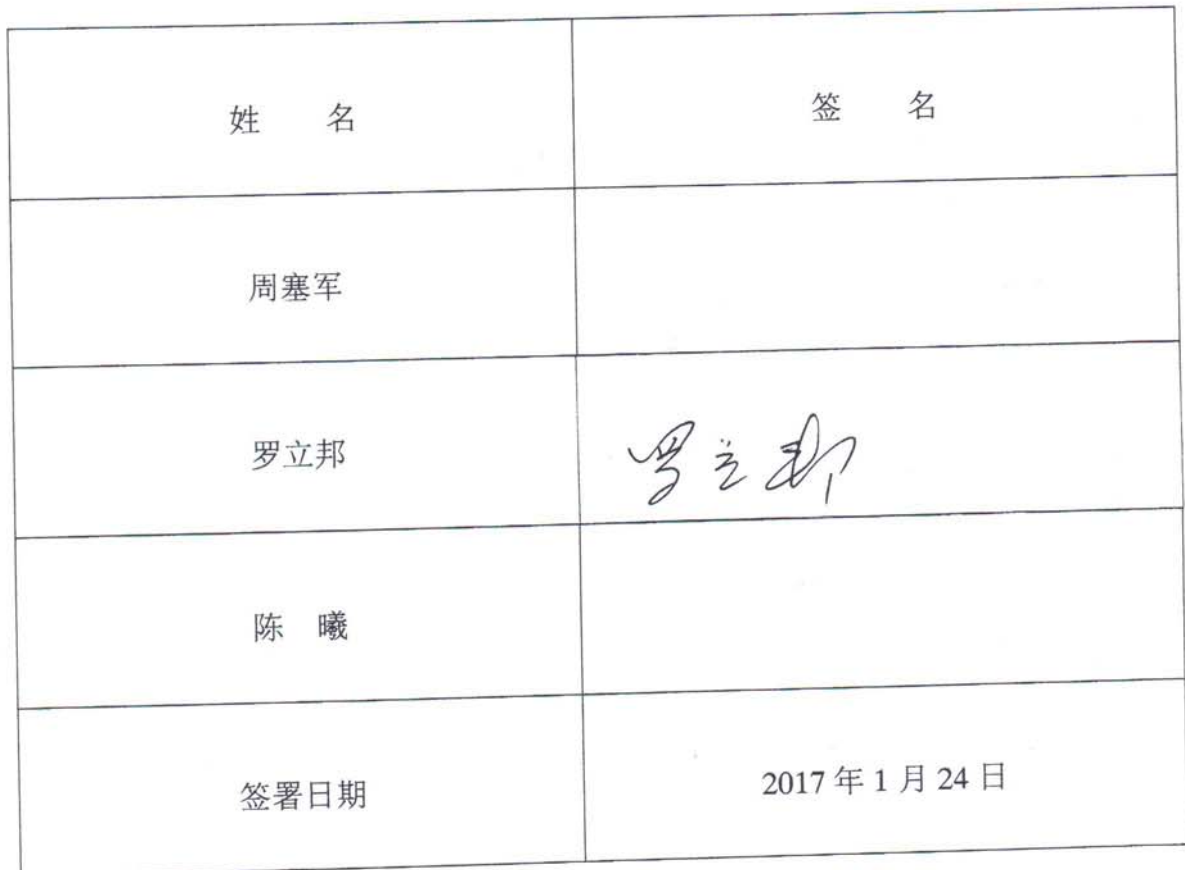 姓 名 签 名
周塞军
罗立邦 罗立邦
陈 曦
签署日期 2017 年 1 月 24 日